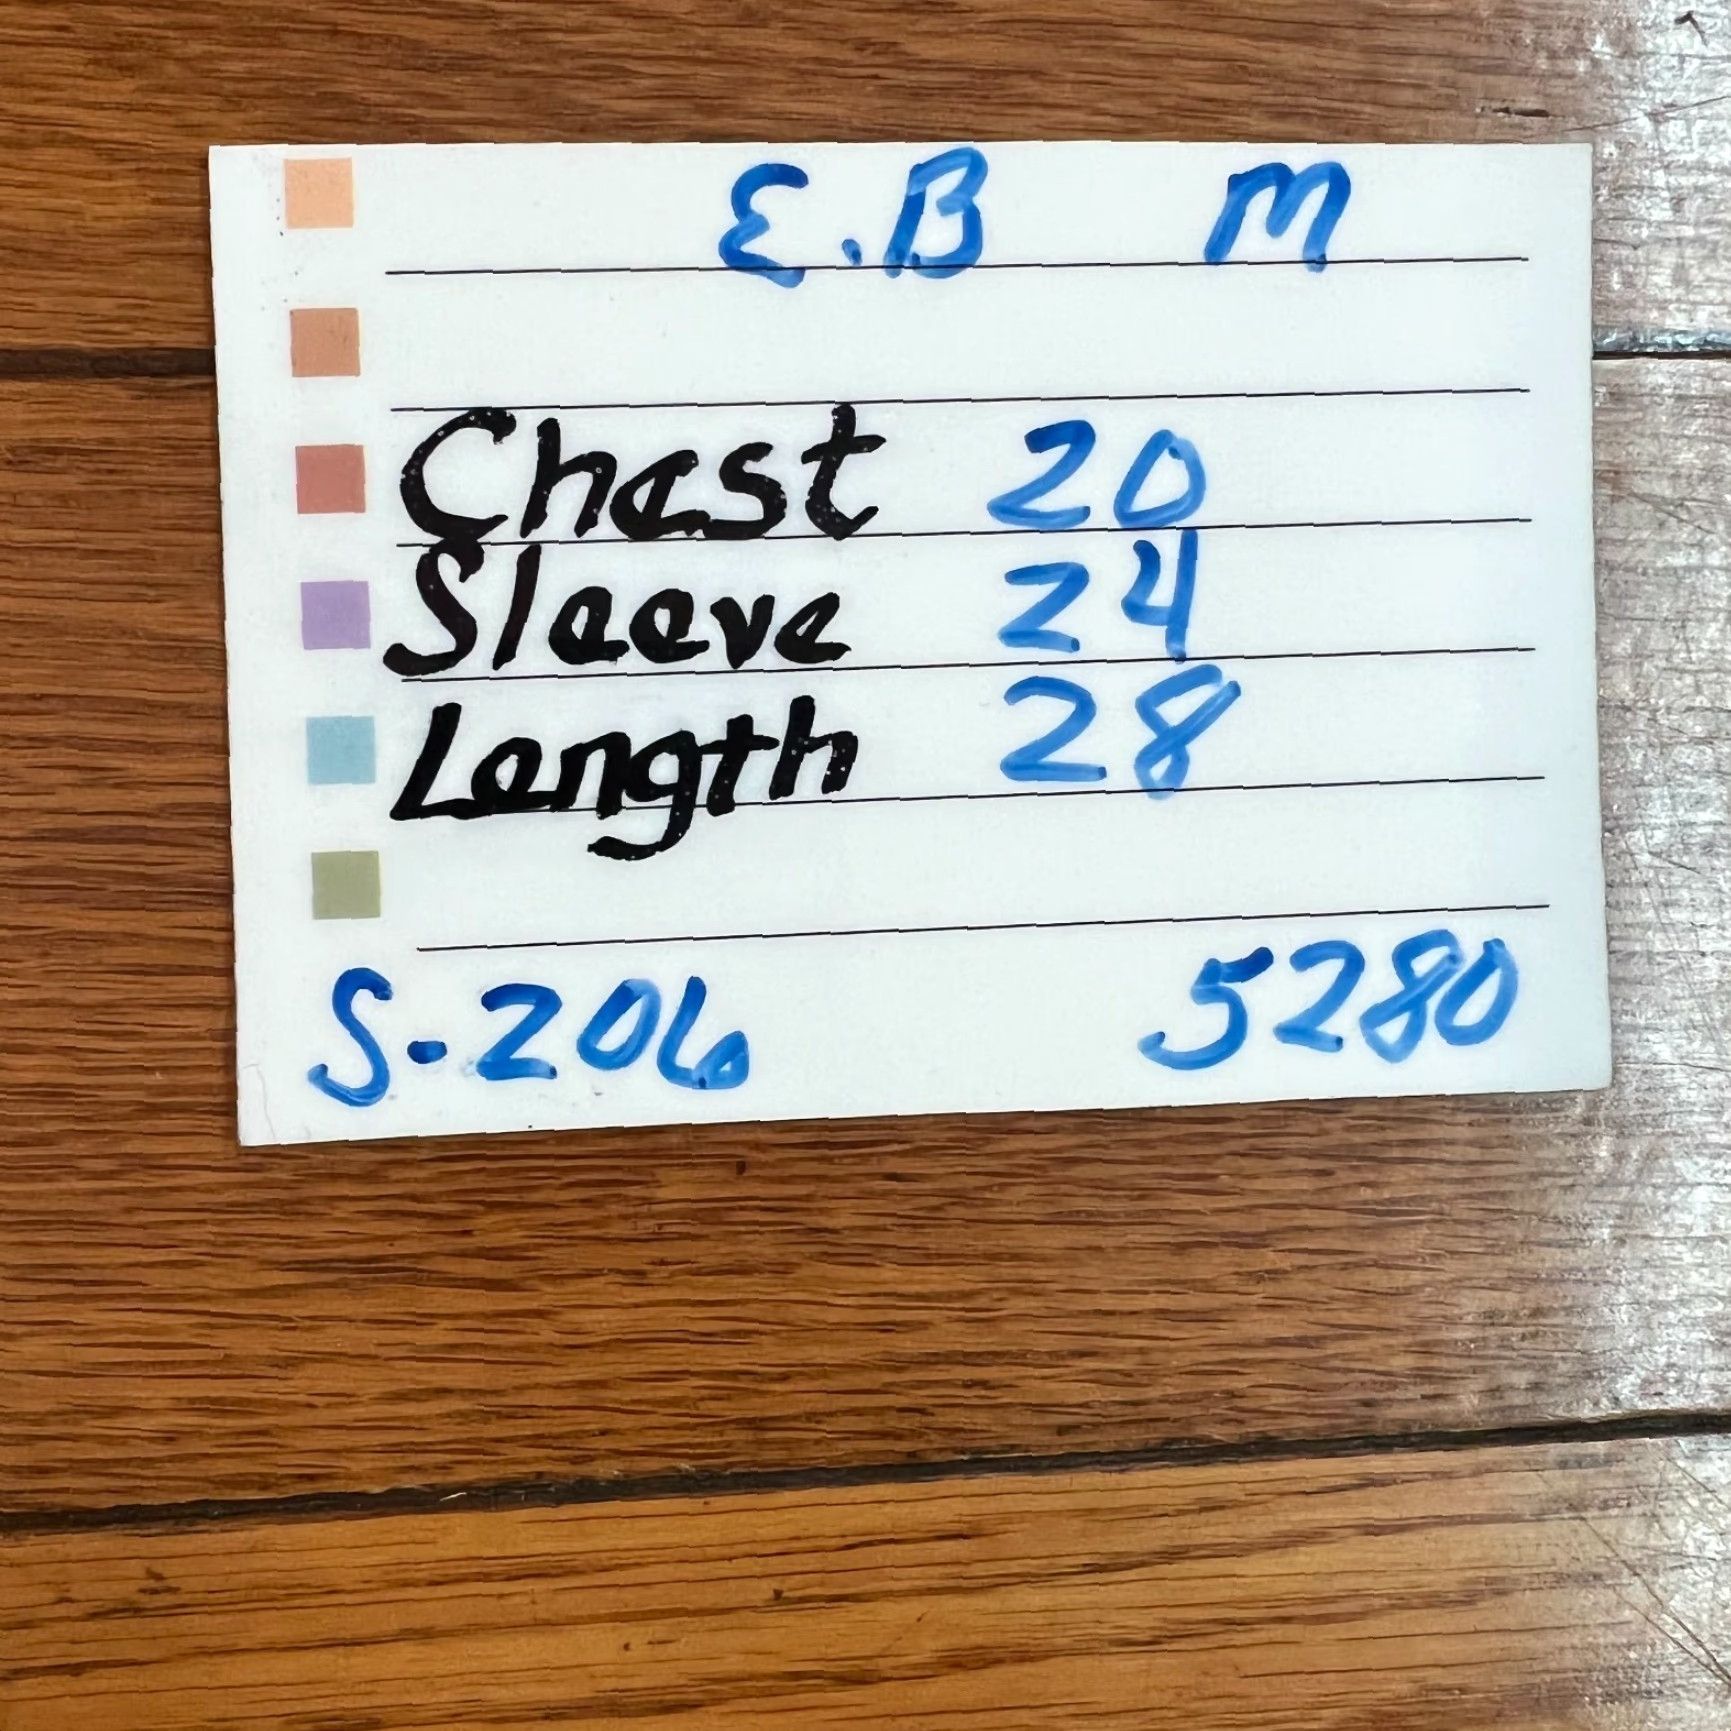 E.B M
Chest 20
Sleeve 24
Length 28
S-206 5280